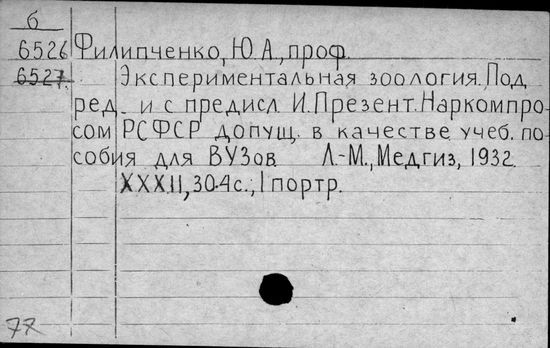 б
6526 Филипченко, Ю.А., проф.
6527. Экспериментальная зоология. Под
ред. и с предисл И. Презент. Наркомпро-
сом РСФСР допущ. в качестве учеб. по
собия для ВУЗов Л.-М., Медгиз, 1932.
XXXII, 304 с., 1 портр.
77